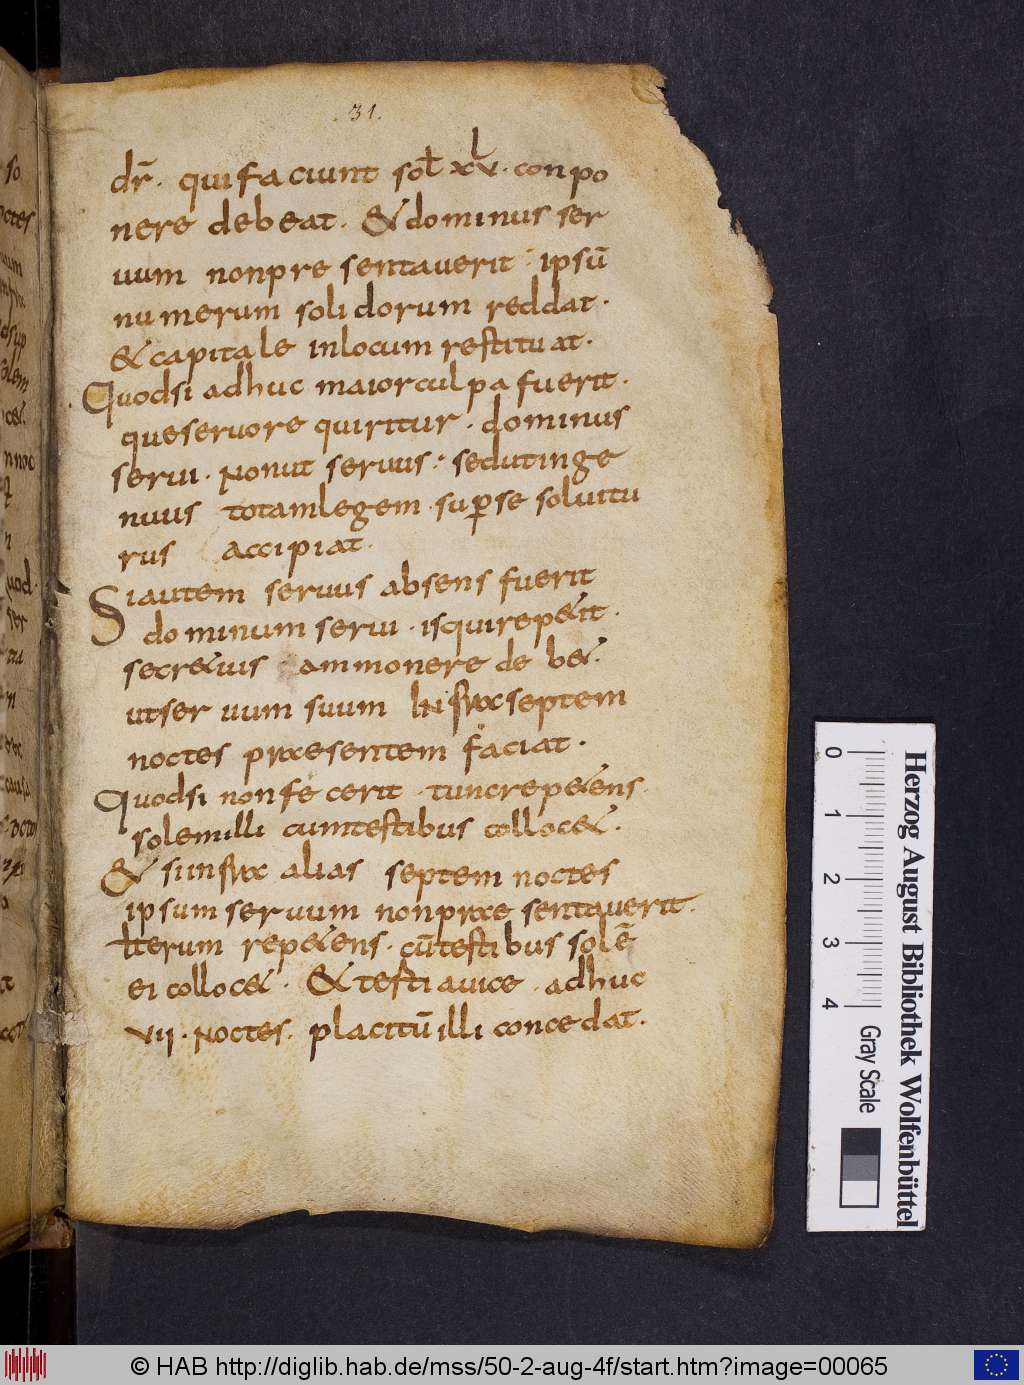 31.
dr̄. qui faciunt sot xLv. conpo
nere debeat. & dominus ser
uum nonpre sentauerit ipsū
numerum soli dorum reddat.
& capitale inlocum restituat.
Quodsi adhuc maior culpa fuerit.
que seruore quiritur. dominus
serui. Nonut seruus: sedut inge
nuus totam legem sup se soluitu
rus accipiat.
Siautem seruus absens fuerit
dominum serui. isquirep&it.
secr&uis ammonere de b&.
utser uum suum INfra septem
noctes praesentem faciat.
Quodsi nonfe cerit. tuncrep&ens.
solemilli cumtestibus colloc&.
& siinfra alias septem noctes
ipsum seruum nonprae sentauerit.
Iterum rep&ens. cūtestibus solē
ei colloc&. & testi auice. adhuc
vii. Noctes. placitūilli concedat.
so
Herzog August Bibliothek Wolfenbüttel
0 1 2 3 4
Gray Scale
© HAB http://diglib.hab.de/mss/50-2-aug-4f/start.htm?image=00065